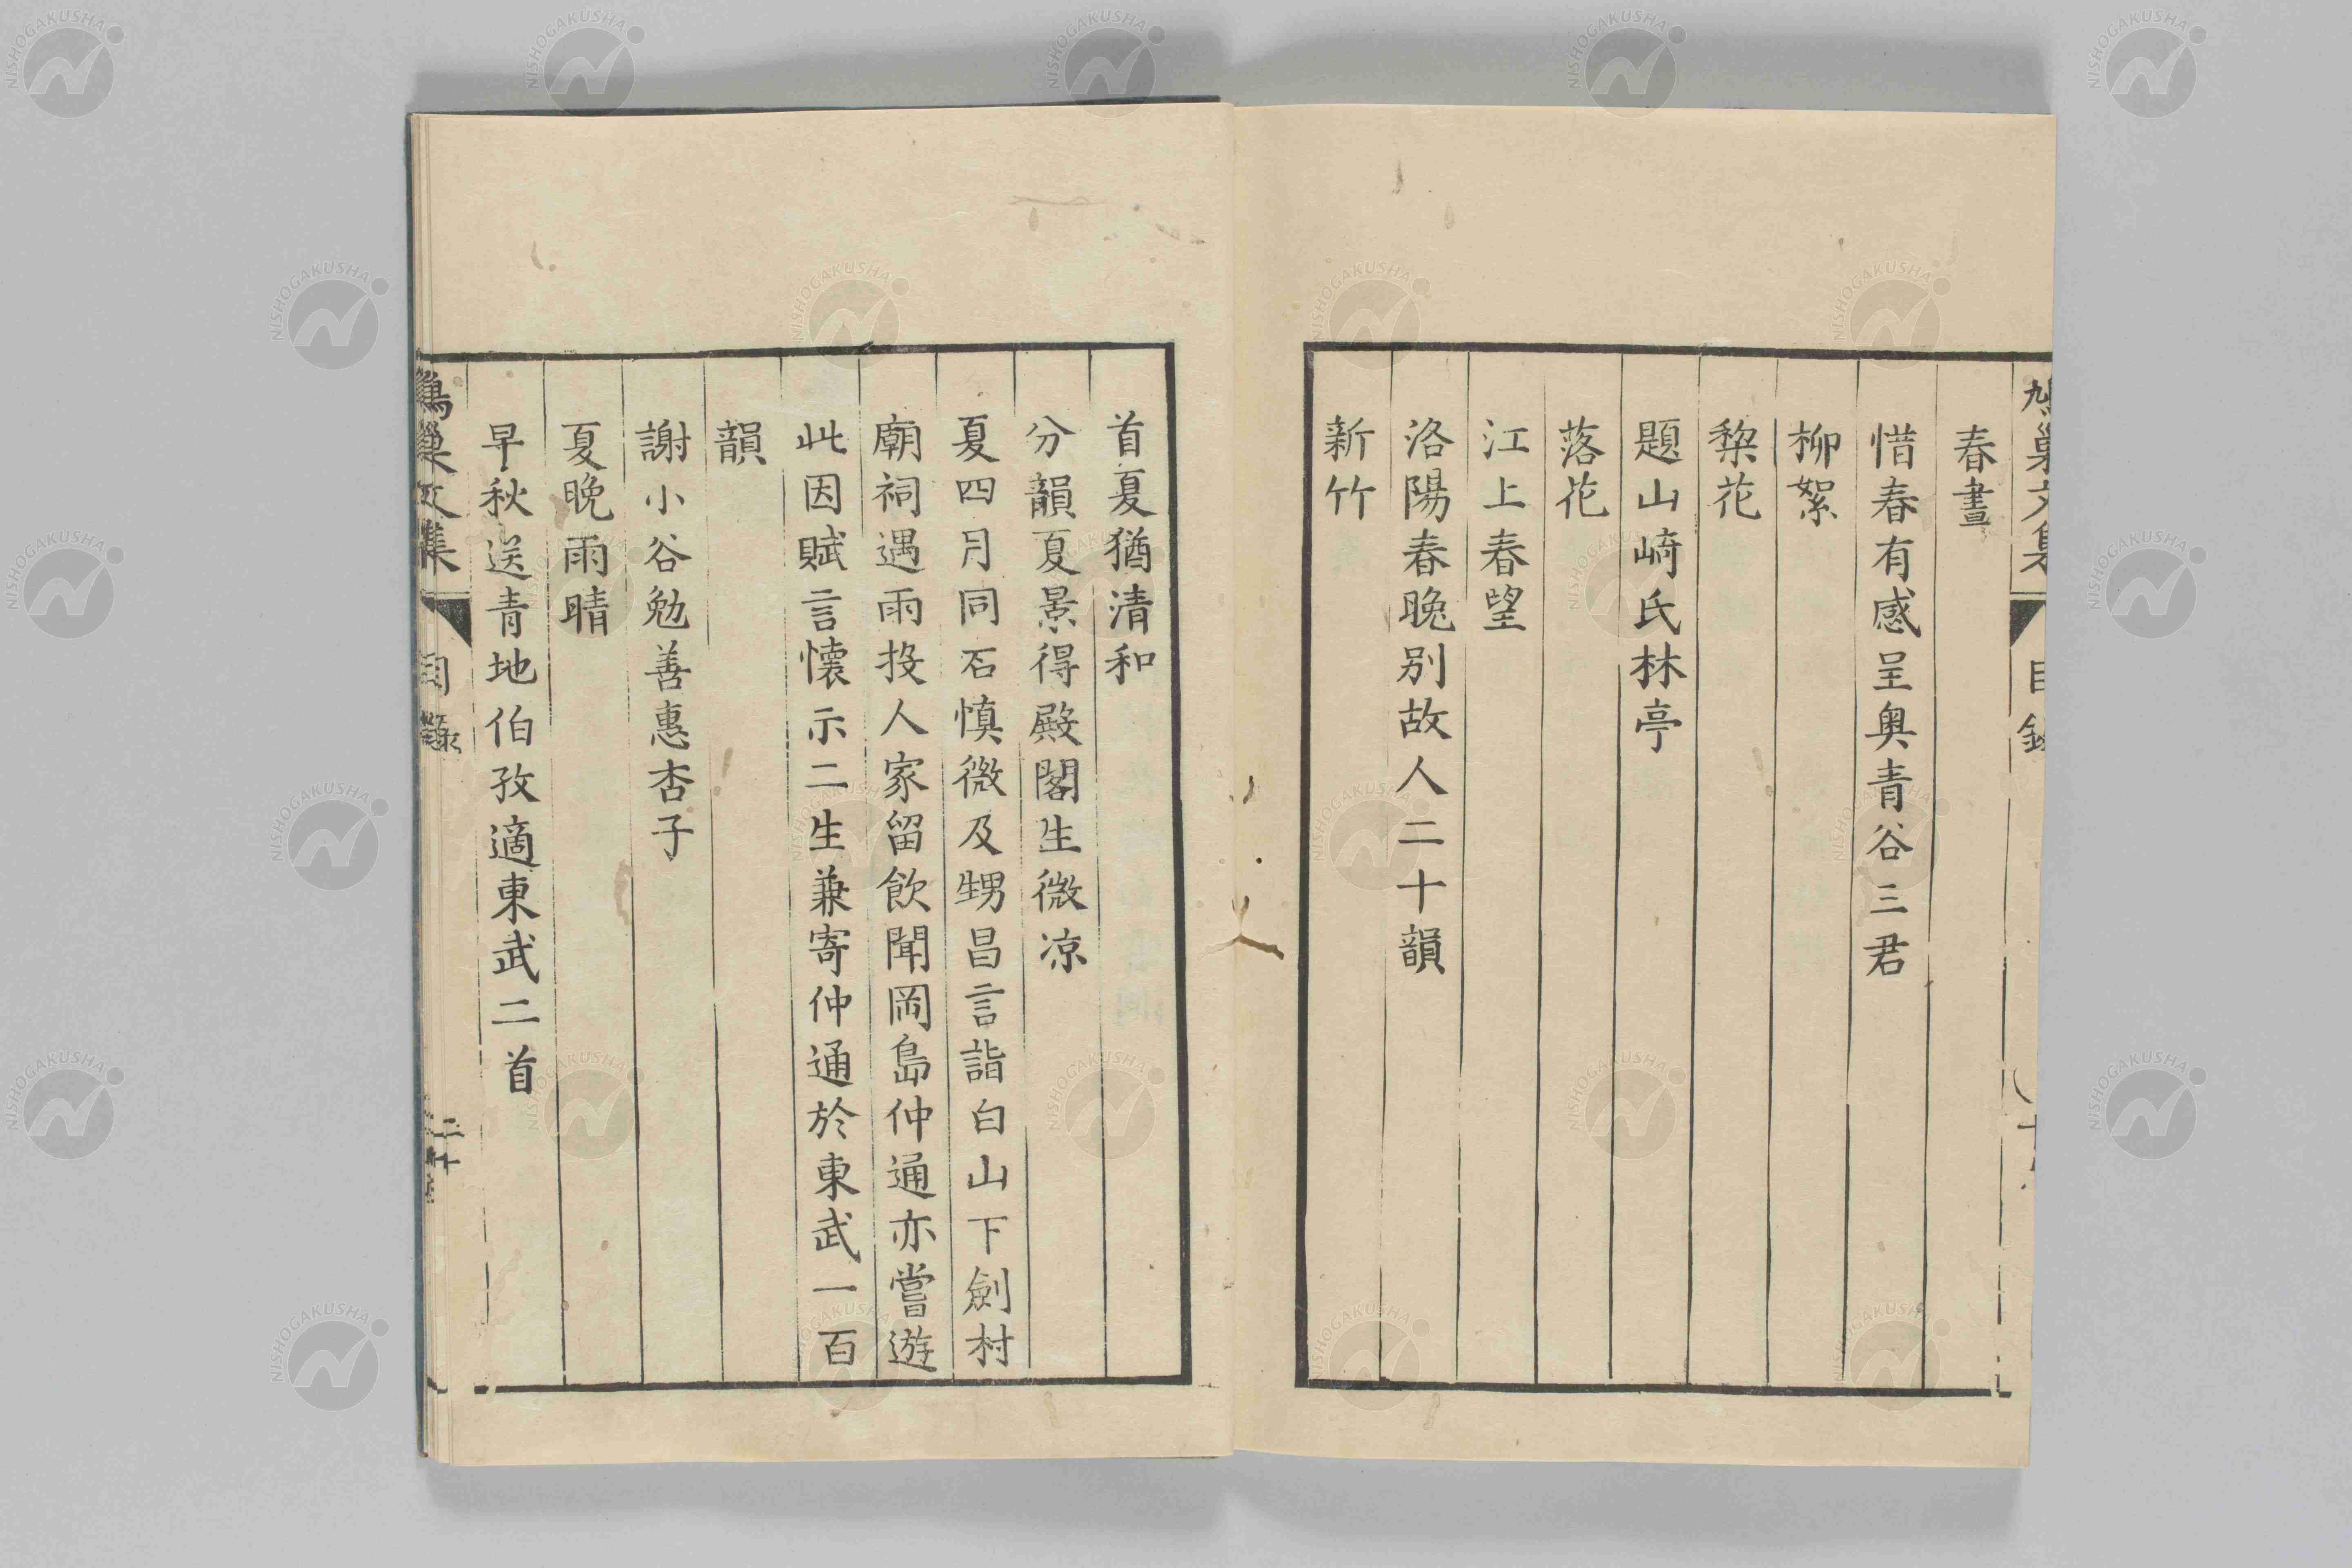 鳩巣文集 目録
春晝
惜春有感呈奥青谷三君
柳絮
棃花
題山﨑氏林亭
落花
江上春望
洛陽春晚別故人二十韻
新竹
首夏猶清和
分韻夏景得殿閣生微凉
夏四月同石慎微及甥昌言詣白山下劍村
廟祠遇雨投人家留飲聞岡島仲通亦嘗遊
此因賦言懷示二生兼寄仲通於東武一百
韻
謝小谷勉善惠杏子
夏晚雨晴
早秋送青地伯孜適東武二首
文集 目錄 二十
NISHOGAKUSHA